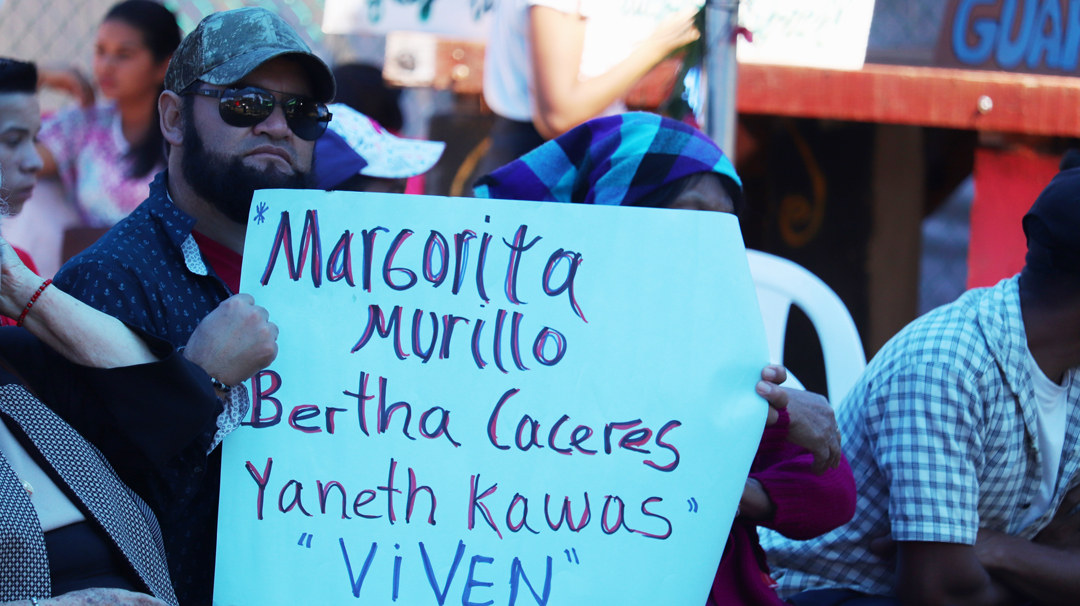 *Margorita
Murillo
Bertha Caceres
Yaneth Kawas"
"ViVEN"